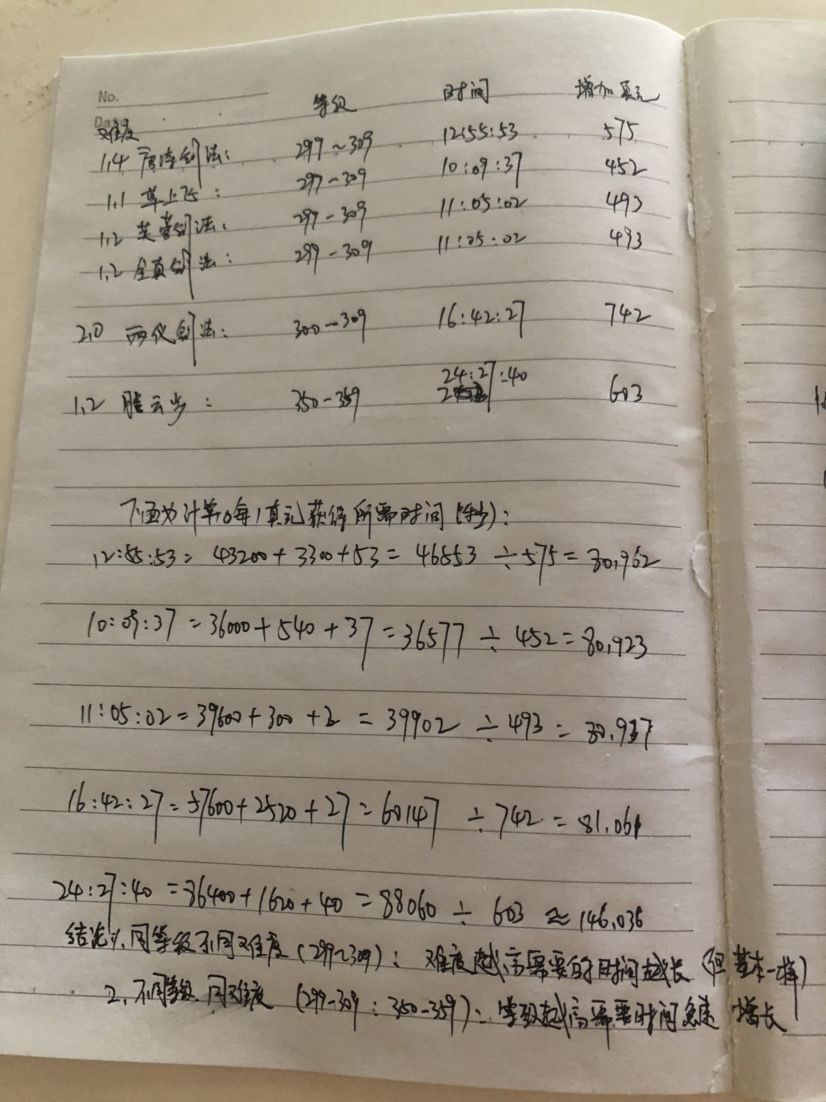 No.
等级 时间 增加真元
Da
难度
1.4 唐诗剑法: 297~309 12:55:53 575
1.1 草上飞: 297-309 10:09:37 452
1.2 芙蓉剑法: 297-309 11:05:02 493
1.2 全真剑法: 299-309 11:05:02 493
2.0 两仪剑法: 300-309 16:42:27 742
1.2 腾云步: 350-359 24:27:40 603
下面为计算每1真元获得所需时间(秒):
12:55:53= 43200+3300+53= 46553 ÷575= 80.962
10:09:37=36000+540+37=36577 ÷ 452=80.923
11:05:02=39600+300+2 = 39902 ÷493= 80.937
16:42:27=57600+2520+27=60147 ÷742=81.061
24:27:40 =86400+1620+40=88060 ÷ 603 ≈146.036
结论1.同等级不同难度(299~309): 难度越高需要的时间越长(但基本一样)
2.不同等级同难度(299-309:350-359): 等级越高需要时间急速增长